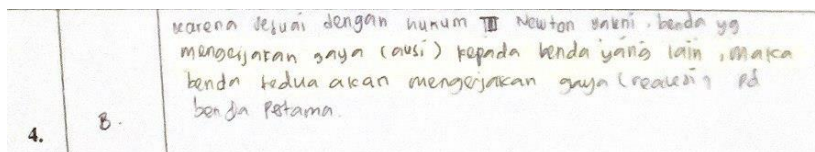 karena sesuai dengan hukum III Newton yakni, benda yg
mengerjakan gaya (aksi) kepada benda yang lain, maka
benda kedua akan mengerjakan gaya (reaksi) pd
benda pertama.
4. B.